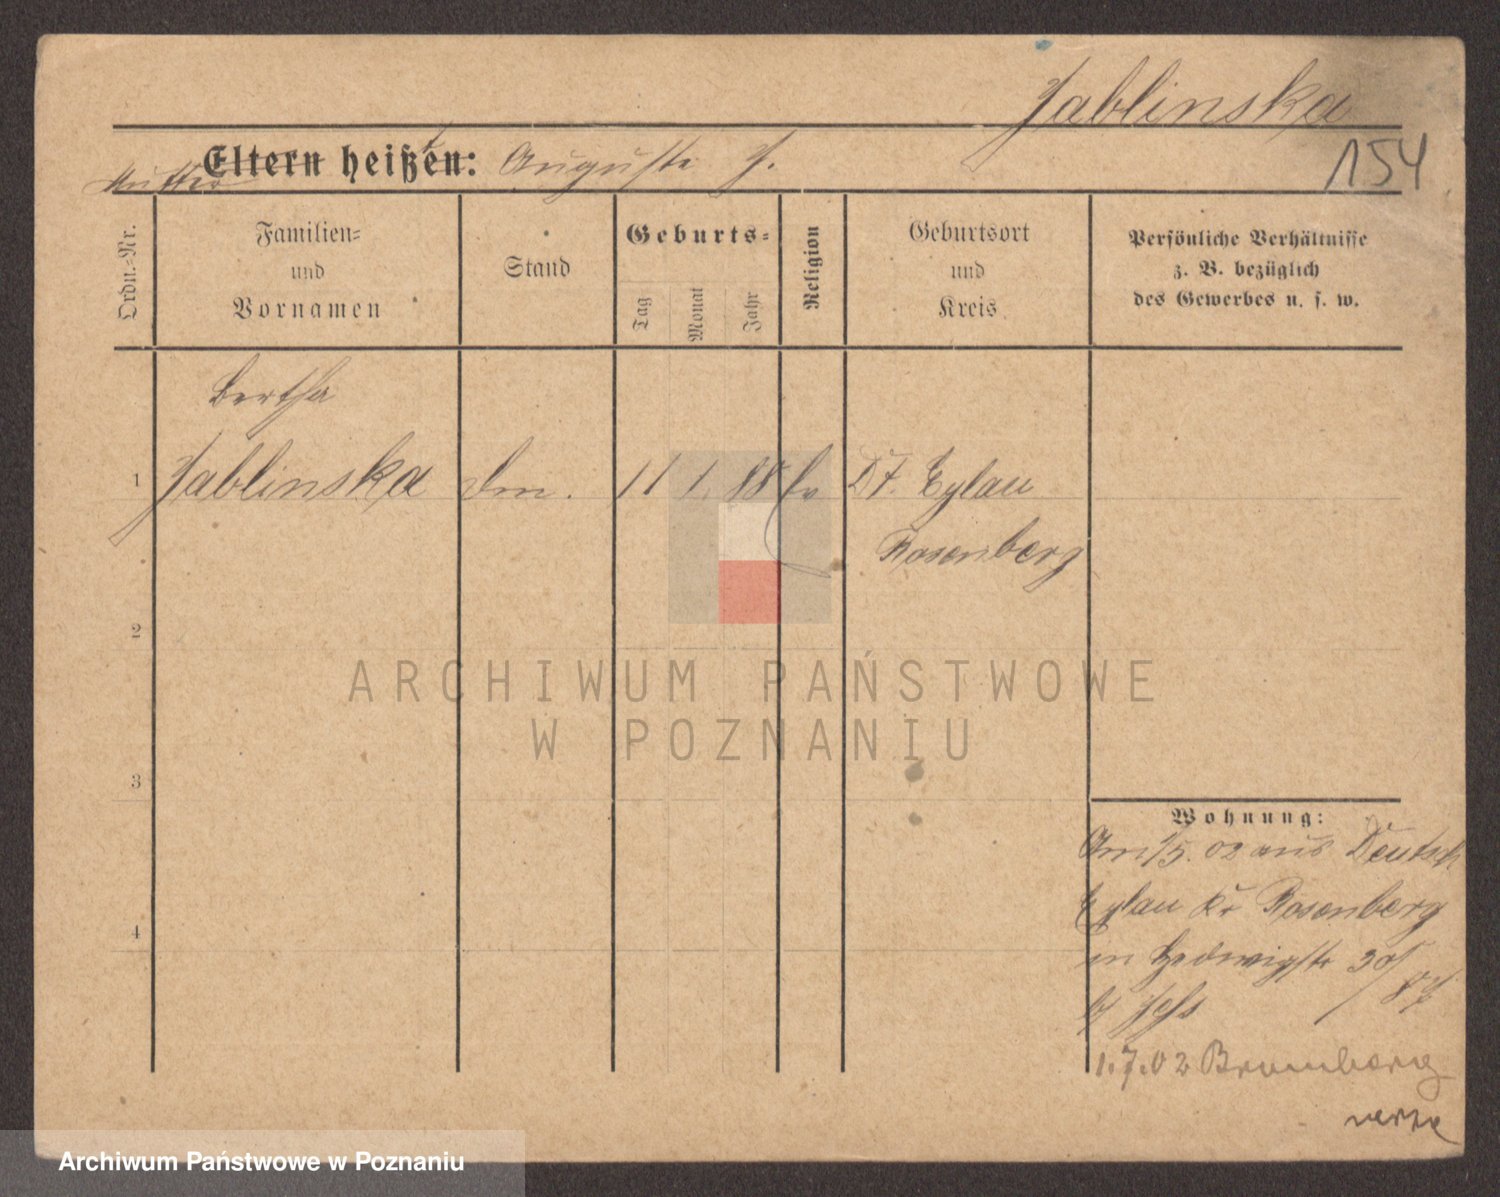 Jablinska
154
Mutter Eltern heißen: Auguste J.
Ordn.-Nr.
Familien-
und
Vornamen
Stand
Geburts-
Tag
Monat
Jahr
Religion
Geburtsort
und
Kreis
Persönliche Verhältnisse
z. B. bezüglich
des Gewerbes u. s. w.
Bertha
1 Jablinska 11 1. 88 Dt. Eylau
Rosenberg
2
3
4
Wohnung:
Am 1/5. 02 aus Deutsch
Eylau Kr Rosenberg
in Hedwigstr 30/
b/
1.7.02 Bromberg
ARCHIWUM PAŃSTWOWE
W POZNANIU
Archiwum Państwowe w Poznaniu